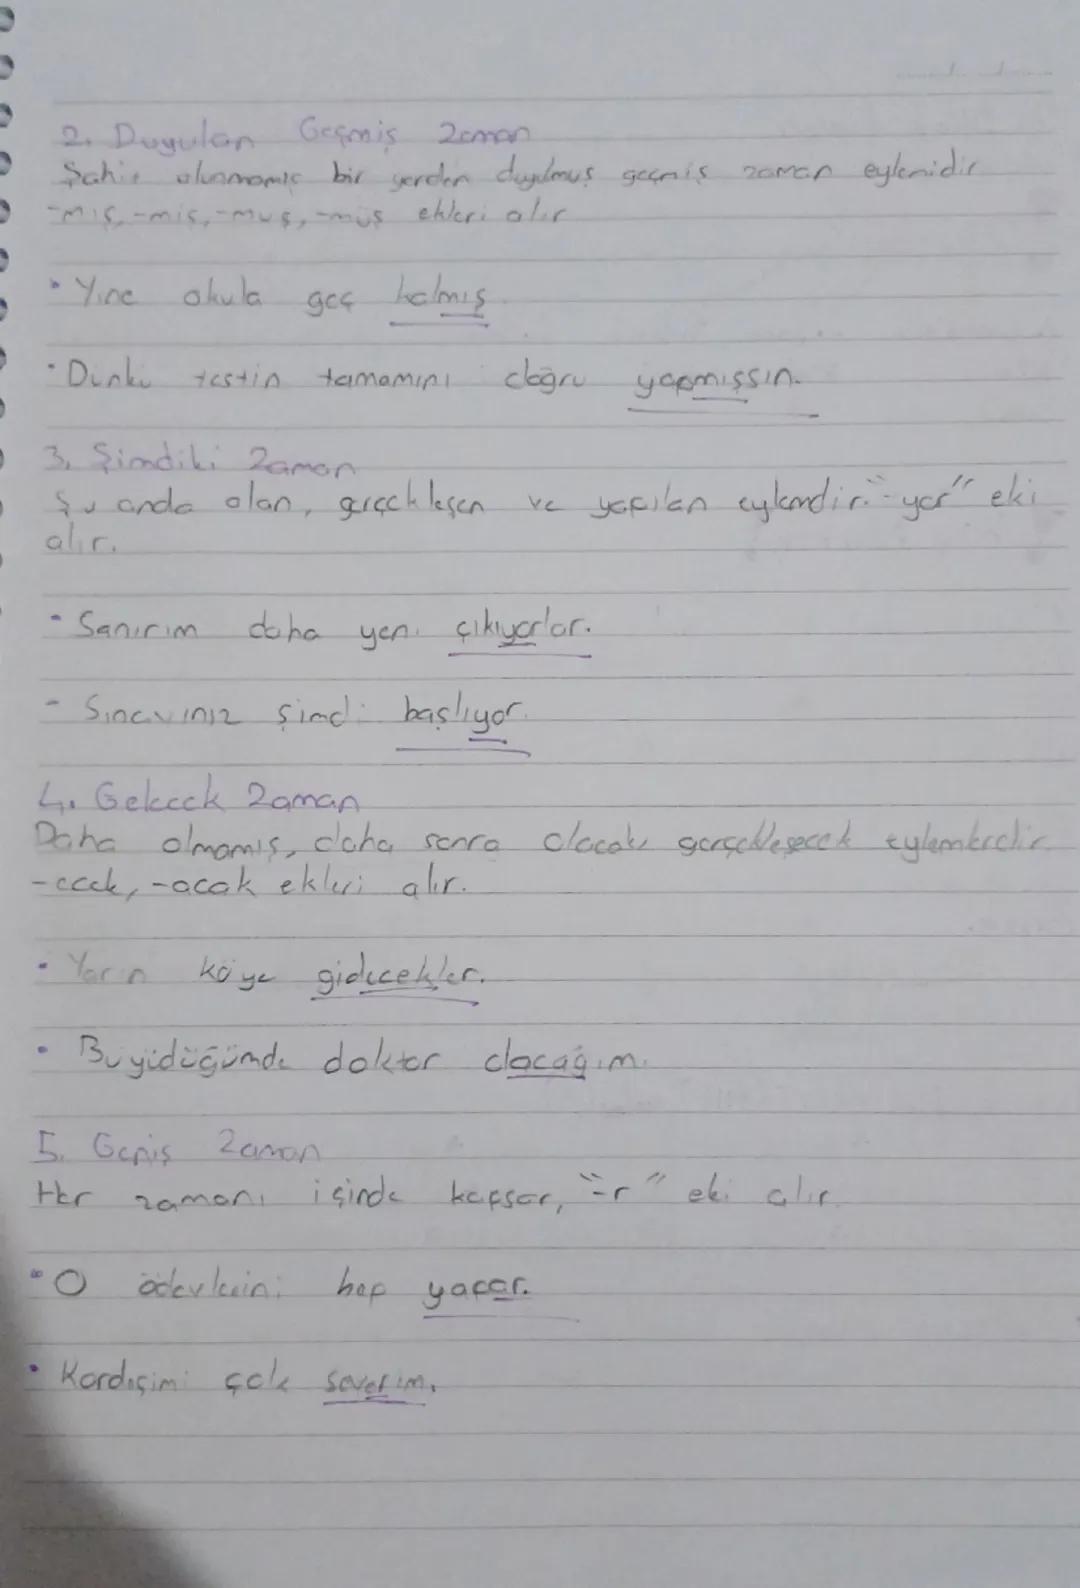 2. Duyulan Geçmiş Zaman
Şahit olunmamış bir yerden duyulmuş geçmiş zaman eylemidir
-mış, -miş, -muş, -müş ekleri alır
• Yine okula geç kalmış.
• Dünkü testin tamamını doğru yapmışsın.
3. Şimdiki Zaman
Şu anda olan, gerçekleşen ve yapılan eylemdir. "-yor" eki
alır.
• Sanırım daha yeni çıkıyorlar.
- Sınavınız şimdi başlıyor.
4. Gelecek Zaman
Daha olmamış, daha sonra olacak, gerçekleşecek eylemlerdir.
-ecek, -acak ekleri alır.
• Yarın köye gidecekler.
• Buyidüğümde doktor olacağım.
5. Geniş Zaman
Her zamanı içinde kapsar, "-r" eki alır
• O ödevlerini hep yapar.
• Kardeşimi çok severim.